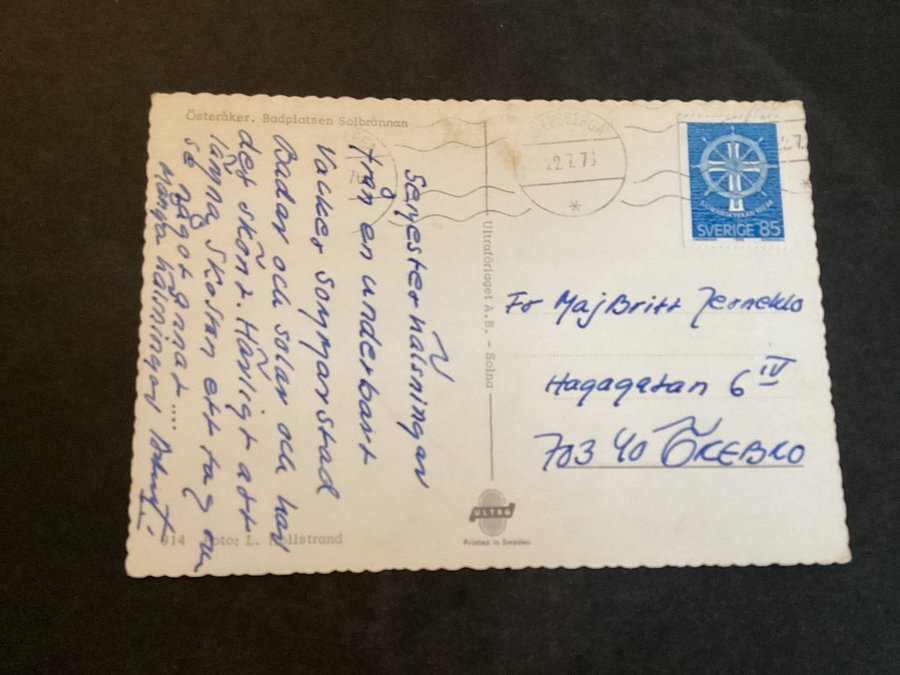 Österåker. Badplatsen Solbrännan
Semesterhälsningar
från en underbart
vacker sommarstad
Badar och solar och har
det skönt. Härligt att
lämna Skolan ett tag om
se något annat....
Många hälsningar
914 Foto: L. Hallstrand
Ultraförlaget A.B. - Solna
ULTRA
Printed in Sweden
22.7.76
SVERIGE 85
Fr MajBritt
Hagagatan 6 IV
703 40 ÖREBRO